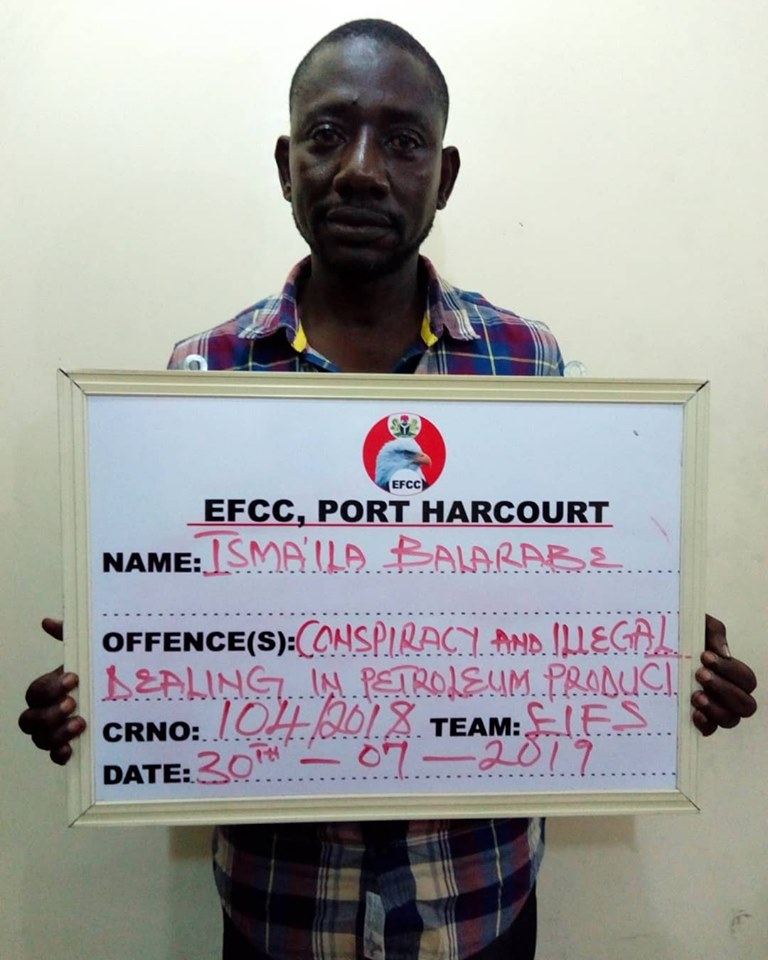 EFCC
EFCC, PORT HARCOURT
NAME: ISMA'ILA BALARABE
OFFENCE(S): CONSPIRACY AND ILLEGAL
DEALING IN PETROLEUM PRODUCT
CRNO: 104/2018 TEAM: EIFS
DATE: 30TH - 07 - 2019